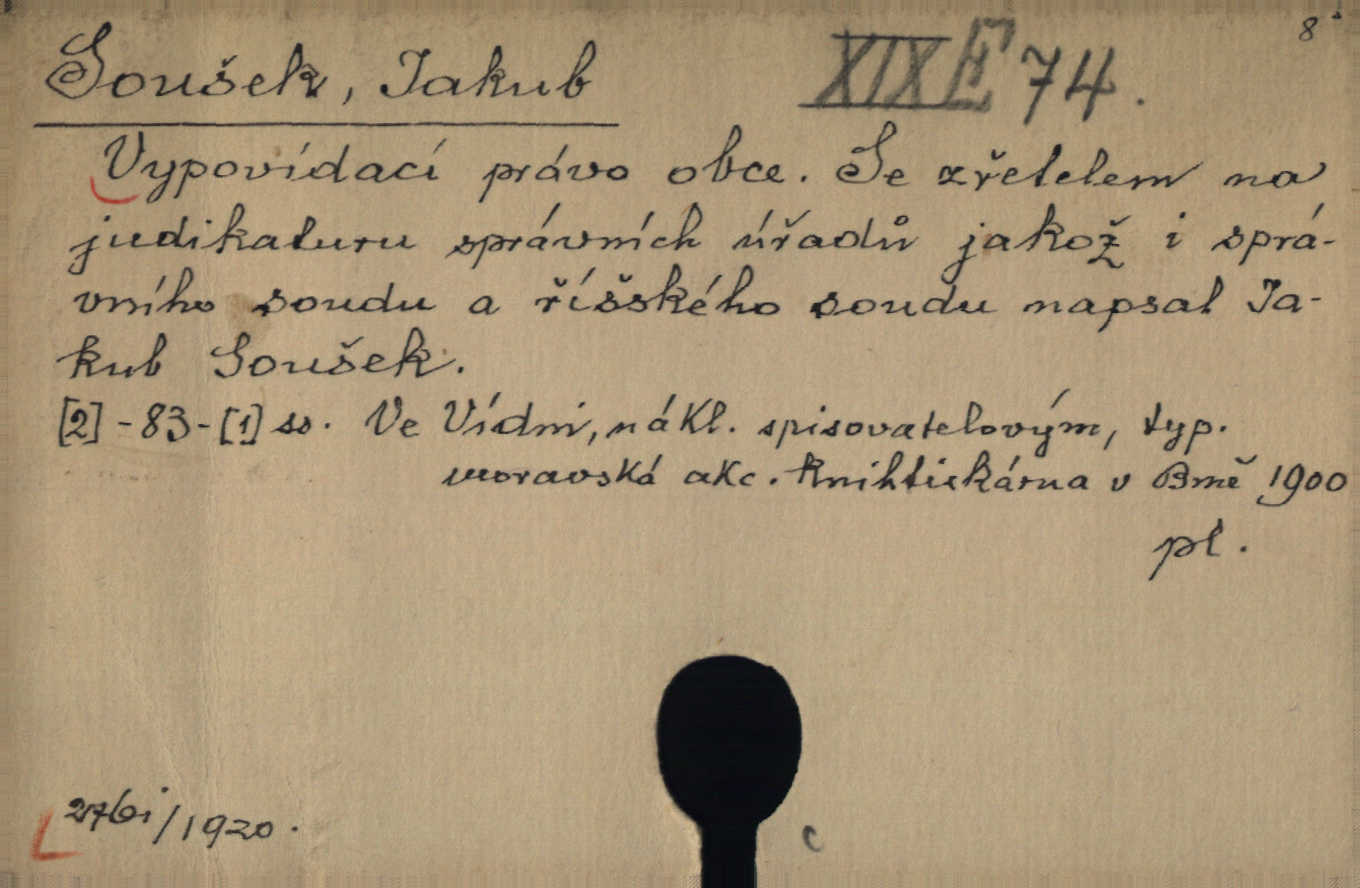 8°
Soušek, Jakub
XIX E 74.
Vypovídací právo obce. Se zřetelem na
judikaturu správních úřadů jakož i sprá-
vního soudu a říšského soudu napsal Ja-
kub Soušek.
[2]-83-[1] ss. Ve Vídni, nákl. spisovatelovým, typ.
moravská akc. knihtiskárna v Brně 1900
pl.
276i/1920.
c